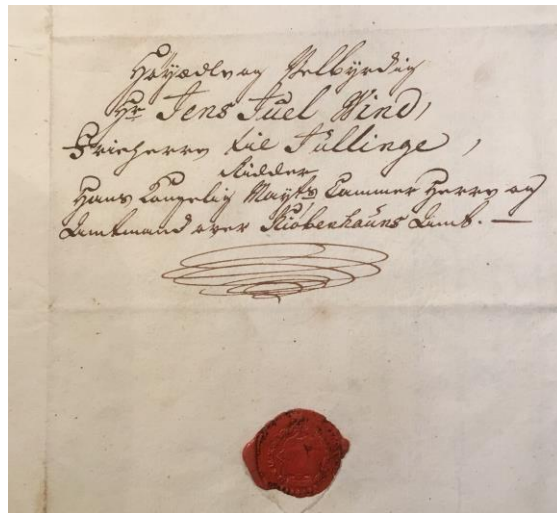 Høyædle og Velbyrdig
Hr Jens Juel Wind,
Frieherre til Jullinge,
Ridder
Hans Kongelig Mayts Cammer Herre og
Amtmand over Kiøbenhauns Amt. —